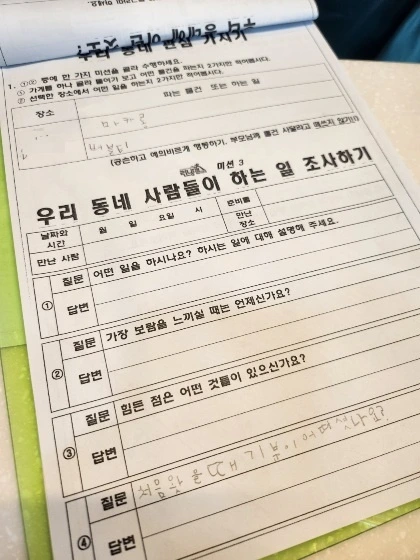 1. ①② 중에 한 가지 미션을 골라 수행하세요.
① 가게를 하나 골라 들어가 보고 어떤 물건을 파는지 2가지만 적어봅시다.
② 선택한 장소에서 어떤 일을 하는지 2가지만 적어봅시다.
장소 파는 물건 또는 하는 일
(공손하고 예의바르게 행동하기, 부모님께 물건 사달라고 떼쓰지 않기!!)
미션 3
우리 동네 사람들이 하는 일 조사하기
날짜와 시간 월 일 요일 시 준비물
만난 사람 만난 장소
① 질문 어떤 일을 하시나요? 하시는 일에 대해 설명해 주세요.
답변
② 질문 가장 보람을 느끼실 때는 언제신가요?
답변
③ 질문 힘든 점은 어떤 것들이 있으신가요?
답변
④ 질문 처음 왔을 때 기분이 어떠셨나요?
답변